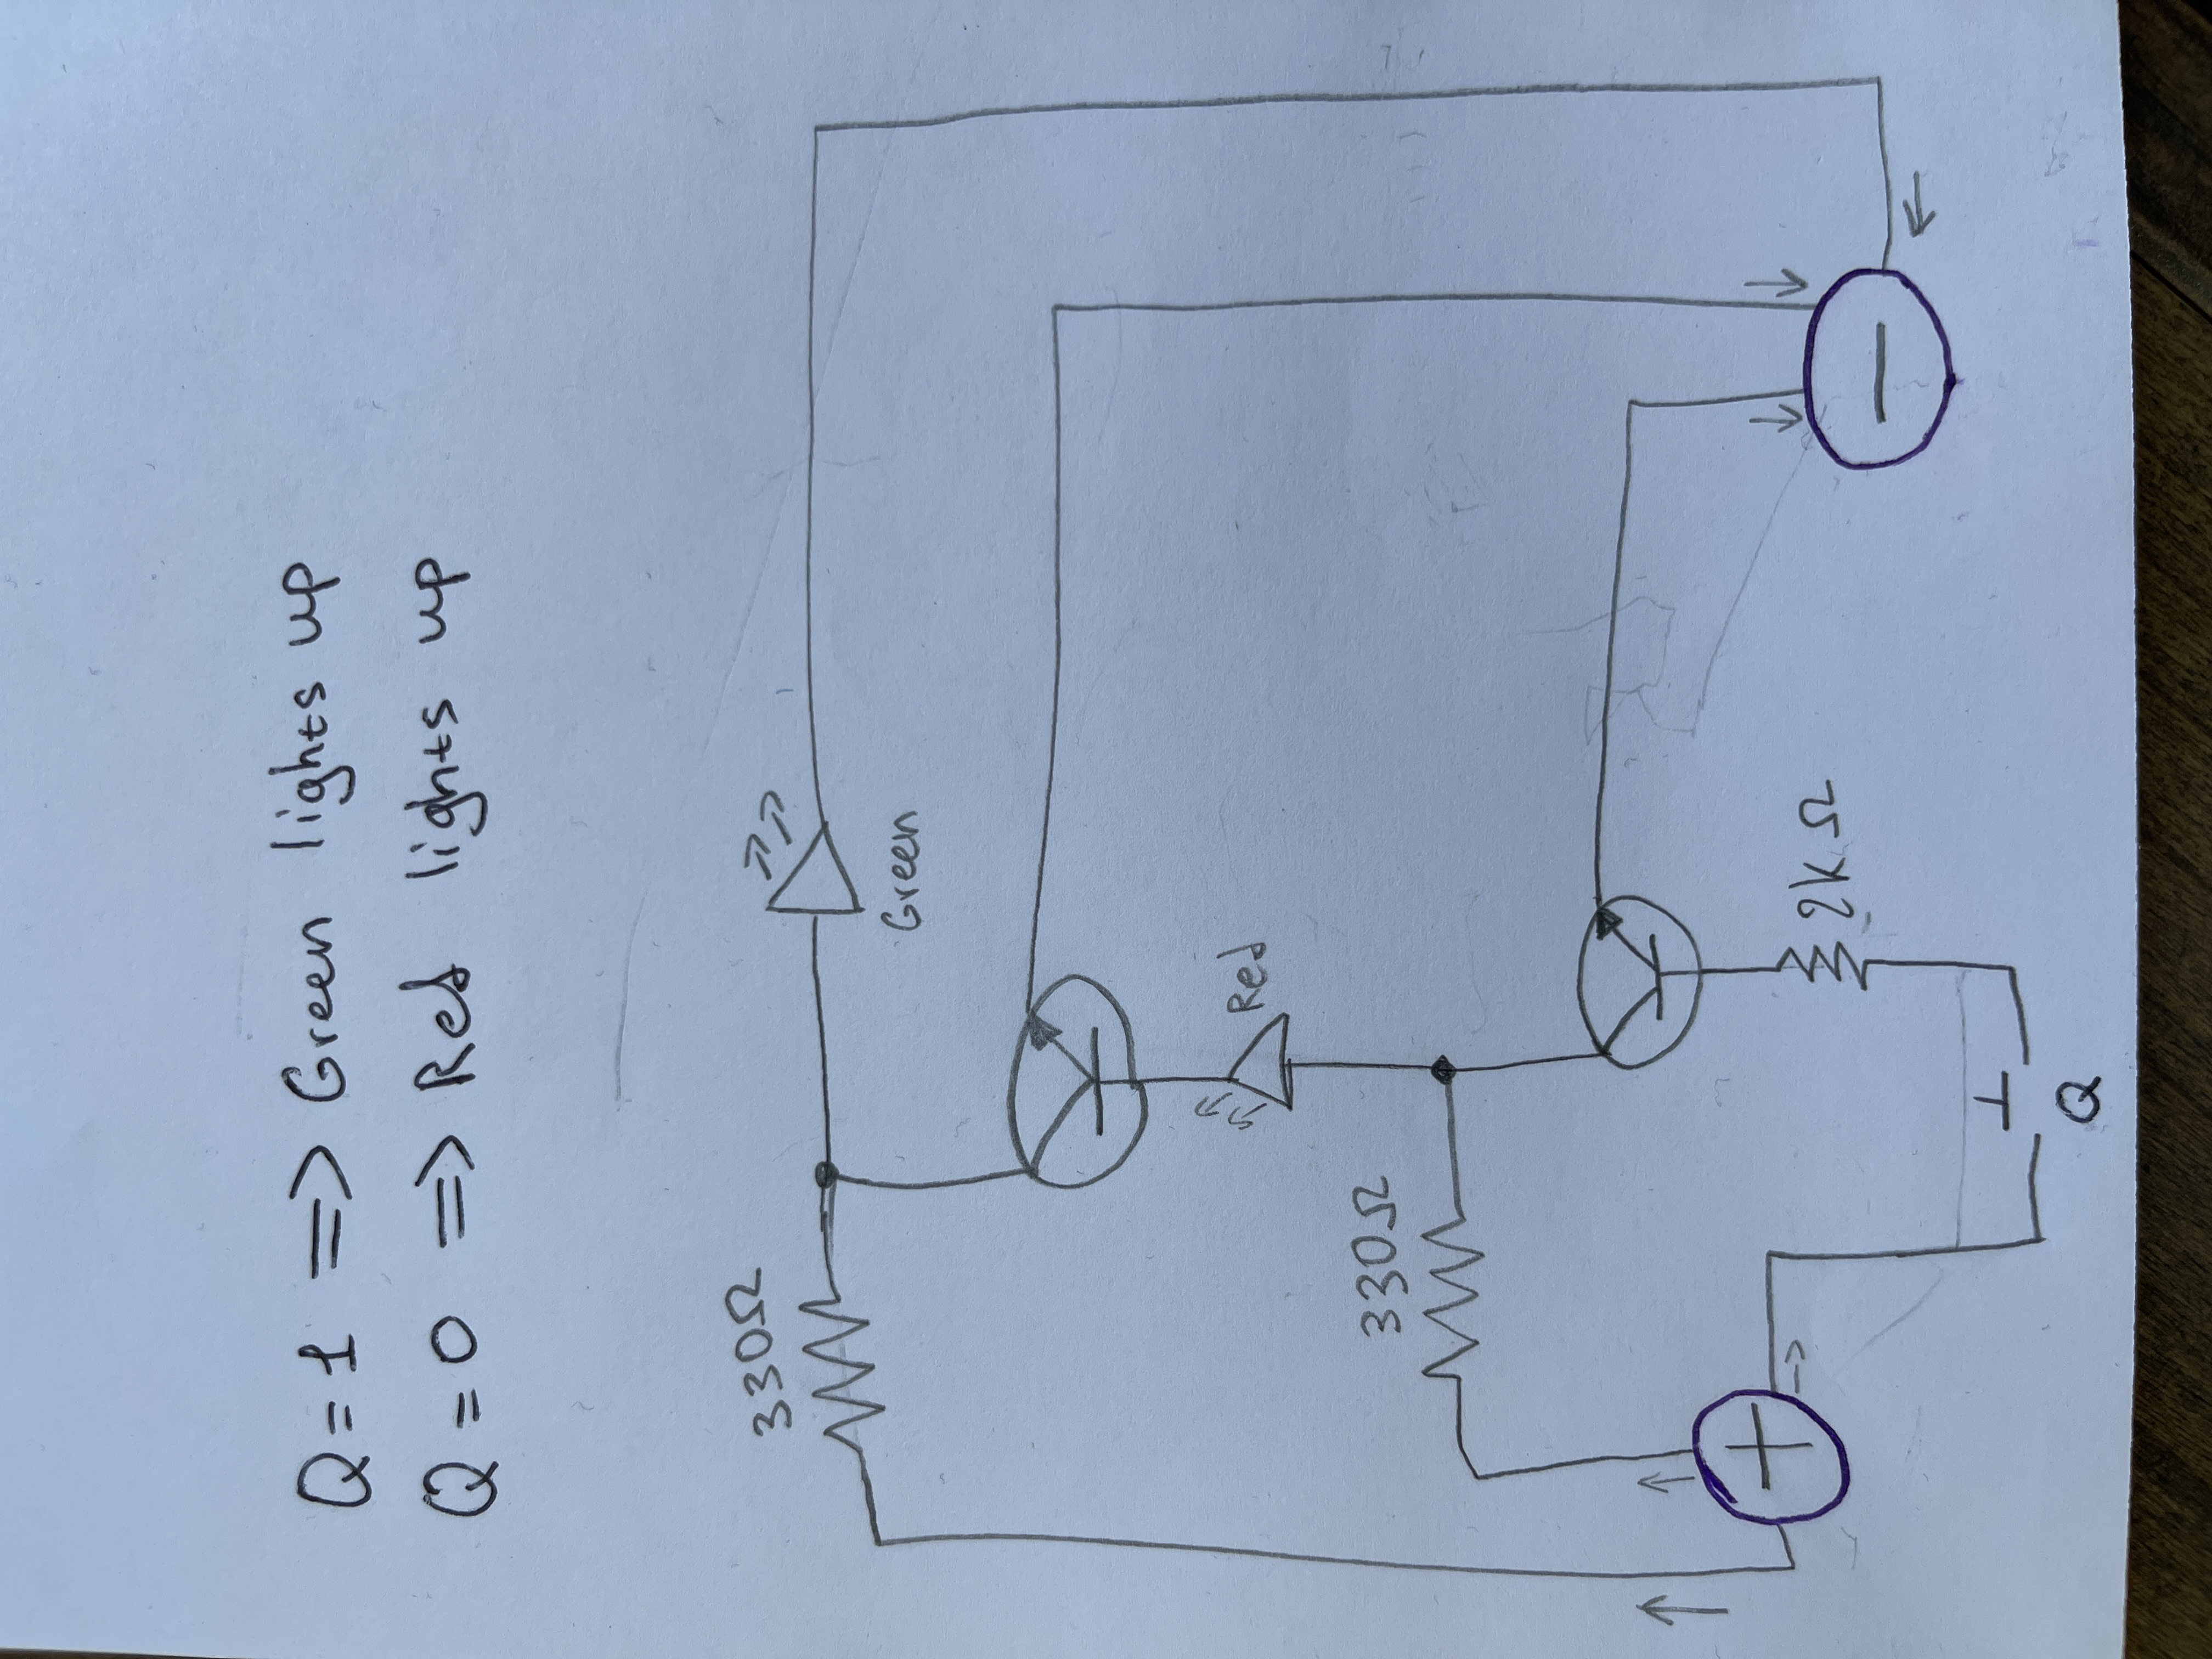 Q = 1 => Green lights up
Q = 0 => Red lights up
330Ω
Green
Red
330Ω
+
2KΩ
−
Q